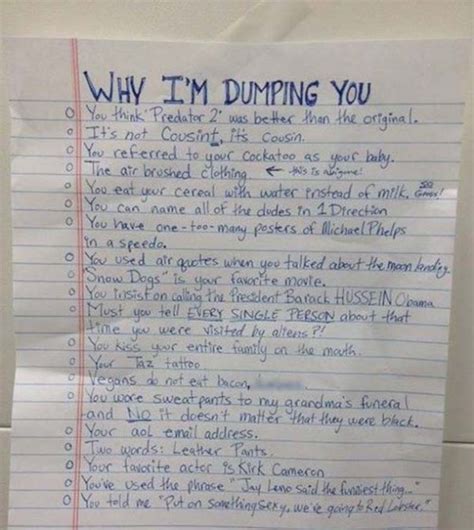 WHY I'M DUMPING YOU
You think 'Predator 2' was better than the original.
It's not Cousint, it's Cousin.
You referred to your cockatoo as your baby.
The air brushed clothing. ← this is a biggune!
You eat your cereal with water instead of milk. SO GROSS!
You can name all of the dudes in 1 Direction
You have one-too-many posters of Michael Phelps
in a speedo.
You used air quotes when you talked about the moon landing
"Snow Dogs" is your favorite movie.
You insist on calling the President Barack HUSSEIN Obama
Must you tell EVERY SINGLE PERSON about that
time you were visited by aliens?!
You kiss your entire family on the mouth.
Your Taz tattoo
Vegans do not eat bacon,
You wore sweatpants to my grandma's funeral
and NO it doesn't matter that they were black.
Your aol email address.
Two words: Leather Pants.
Your favorite actor is Kirk Cameron
You've used the phrase "Jay Leno said the funniest thing..."
You told me "Put on something sexy, we're going to Red Lobster."